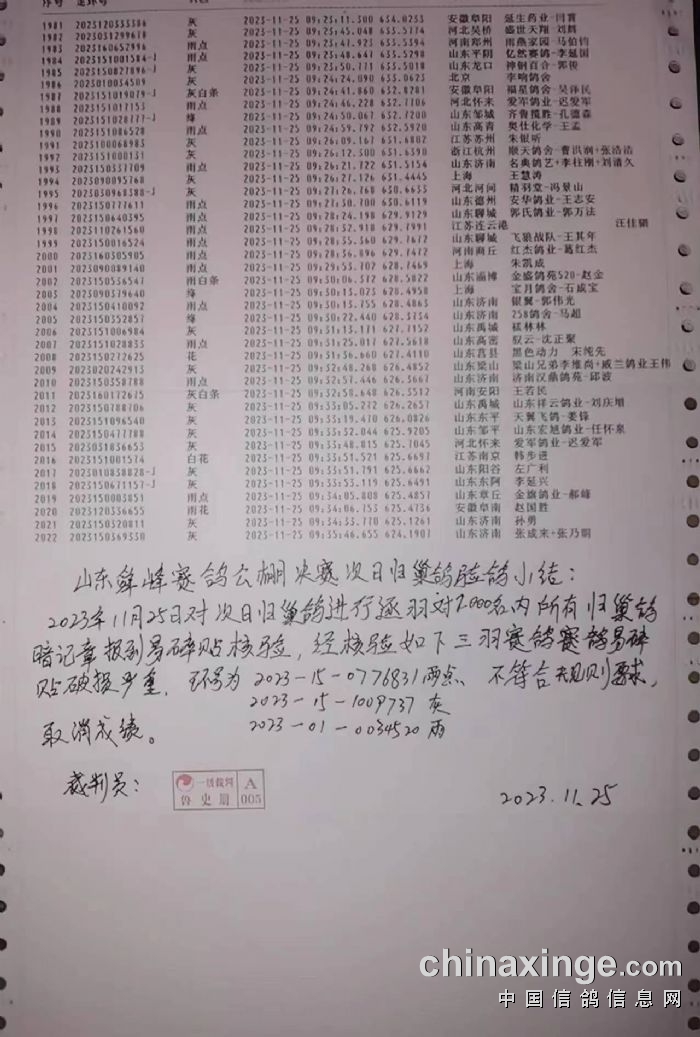 序号 足环号
1981 2023120333386 灰 2023-11-25 09:23:11.300 634.0233 安徽阜阳 延生药业-闫胄
1982 2023031299678 灰 2023-11-25 09:23:45.048 633.5774 河北吴桥 盛世天翔-刘辉
1983 2023160652996 雨点 2023-11-25 09:23:47.923 633.5394 河南郑州 雨燕家园-马伯钧
1984 2023151001584-J 雨点 2023-11-25 09:23:48.647 633.5298 山东平阴 亿然赛鸽-李延国
1985 2023150827896-J 灰 2023-11-25 09:23:50.771 633.5018 山东龙口 神钢百合-郭俊
1986 2023010034509 灰 2023-11-25 09:24:24.090 633.0623 北京 李响鸽舍
1987 2023151019079-J 灰白条 2023-11-25 09:24:41.860 632.8281 安徽阜阳 福星鸽舍-吴泽民
1988 2023151017153 雨点 2023-11-25 09:24:46.228 632.7706 河北怀来 爱军鸽业-迟爱军
1989 2023151028777-J 绛 2023-11-25 09:24:50.067 632.7200 山东邹城 齐鲁揽胜-孔德森
1990 2023151086528 雨点 2023-11-25 09:24:59.792 632.5920 山东高青 奥仕化学-王孟
1991 2023100068983 灰 2023-11-25 09:26:09.167 631.6802 江苏苏州 朱银听
1992 2023151000131 灰 2023-11-25 09:26:12.300 631.6390 浙江杭州 顺天鸽舍-曹洪润+张浩洁
1993 2023150337709 雨点 2023-11-25 09:26:21.722 631.5154 山东济南 名典鸽艺+李柱刚+刘清久
1994 2023090095768 灰 2023-11-25 09:26:27.126 631.4445 上海 王慧涛
1995 2023030968388-J 灰 2023-11-25 09:27:26.768 630.6633 河北河间 精羽堂-冯景山
1996 2023150777611 雨点 2023-11-25 09:27:30.700 630.6119 山东德州 安华鸽业-王志安
1997 2023150640395 雨点 2023-11-25 09:28:24.198 629.9129 山东聊城 郭氏鸽业-郭万法
1998 2023110261560 雨点 2023-11-25 09:28:32.918 629.7991 江苏连云港 汪佳骝
1999 2023150016524 雨点 2023-11-25 09:28:35.360 629.7672 山东聊城 飞狼战队-王其年
2000 2023160305905 雨点 2023-11-25 09:28:36.896 629.7472 河南商丘 红杰鸽业-葛红杰
2001 2023090089140 雨点 2023-11-25 09:29:55.702 628.7469 上海 朱凯成
2002 2023150536547 雨白条 2023-11-25 09:30:06.372 628.5822 山东淄博 金盛鸽苑520-赵金
2003 2023090379640 绛 2023-11-25 09:30:13.023 628.4958 上海 宝月鸽舍-石成宝
2004 2023150410092 雨点 2023-11-25 09:30:13.755 628.4863 山东济南 银翼-郭伟光
2005 2023150352857 绛 2023-11-25 09:30:22.440 628.3734 山东济南 258鸽舍-马超
2006 2023151006984 灰 2023-11-25 09:31:13.171 627.7152 山东禹城 嵇林林
2007 2023151028833 雨点 2023-11-25 09:31:25.017 627.5618 山东高密 驭云-沈正聚
2008 2023150272625 花 2023-11-25 09:31:36.660 627.4110 山东莒县 黑色动力 宋纯先
2009 2023020242913 灰 2023-11-25 09:32:48.268 626.4852 山东梁山 梁山兄弟李维尚+威兰鸽业王伟
2010 2023150358788 雨点 2023-11-25 09:32:57.446 626.3667 山东济南 济南汉鼎鸽苑-邱波
2011 2023160172675 灰白条 2023-11-25 09:32:58.648 626.3512 河南安阳 王若民
2012 2023150788706 灰 2023-11-25 09:33:05.272 626.2657 山东禹城 山东祥云鸽业-刘庆增
2013 2023151096540 灰 2023-11-25 09:33:19.470 626.0826 山东东平 天翼飞鸽-姜锋
2014 2023150477788 灰 2023-11-25 09:33:32.044 625.9205 山东邹平 山东宏旭鸽业-任怀泉
2015 2023031836653 灰 2023-11-25 09:33:48.815 625.7045 河北怀来 爱军鸽业-迟爱军
2016 2023151001574 白花 2023-11-25 09:33:51.521 625.6697 江苏南京 韩步进
2017 2023010838828-J 灰 2023-11-25 09:33:51.791 625.6662 山东阳谷 左广利
2018 2023150671157-J 灰 2023-11-25 09:33:53.119 625.6491 山东东阿 李延兴
2019 2023150003851 雨点 2023-11-25 09:34:05.808 625.4857 山东章丘 金旗鸽业-郝峰
2020 2023120336655 雨花 2023-11-25 09:34:06.753 625.4736 安徽阜南 赵国胜
2021 2023150320811 灰 2023-11-25 09:34:33.770 625.1261 山东济南 孙勇
2022 2023150369330 灰 2023-11-25 09:35:46.655 624.1907 山东济南 张成来+张乃明
山东锋峰赛鸽公棚决赛次日归巢鸽验鸽小结：
2023年11月25日对次日归巢鸽进行逐羽对2000名内所有归巢鸽
暗记章报到易碎贴核验，经核验如下三羽赛鸽赛鸽易碎
贴破损严重，环号为 2023-15-0776831雨点 不符合规则要求，
2023-15-1009737 灰
取消成绩。 2023-01-0034520 雨
裁判员： 一级裁判 鲁史册 A 005 2023.11.25
chinaxinge.com
中国信鸽信息网